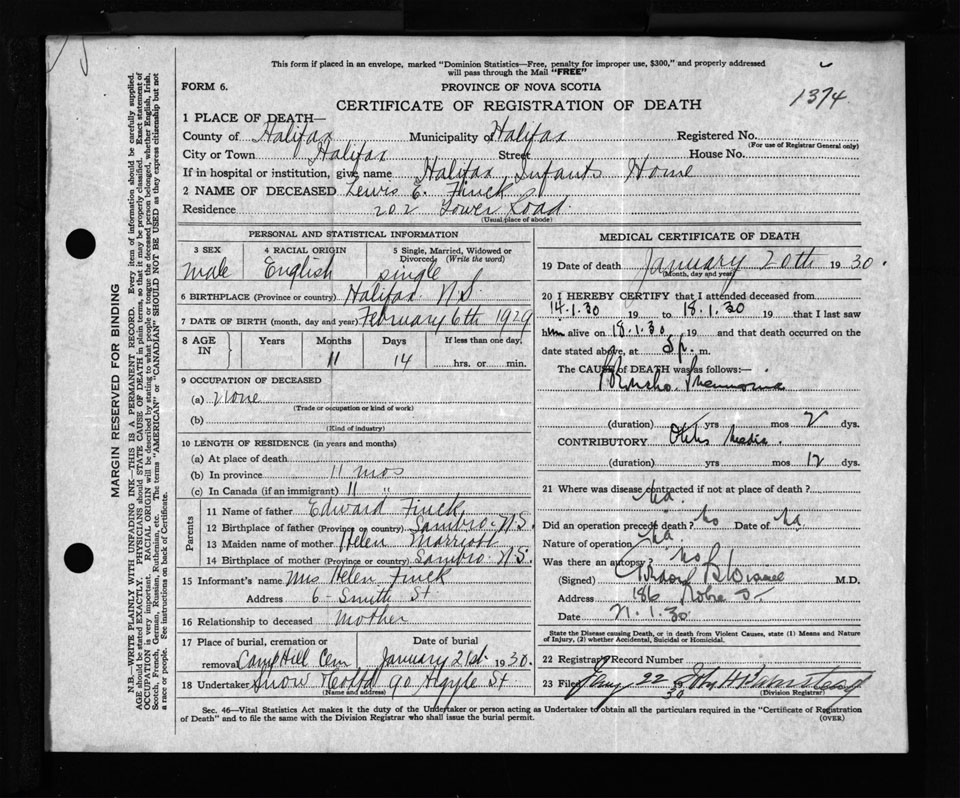 This form if placed in an envelope, marked "Dominion Statistics—Free, penalty for improper use, $300," and properly addressed
will pass through the Mail "FREE"
FORM 6.
PROVINCE OF NOVA SCOTIA
1374
CERTIFICATE OF REGISTRATION OF DEATH
1 PLACE OF DEATH—
County of Halifax Municipality of Halifax Registered No.
(For use of Registrar General only)
City or Town Halifax Street House No.
If in hospital or institution, give name Halifax Infants Home
2 NAME OF DECEASED Lewis E. Finck
Residence 202 Tower Road.
(Usual place of abode)
PERSONAL AND STATISTICAL INFORMATION
3 SEX 4 RACIAL ORIGIN 5 Single, Married, Widowed or
Divorced (Write the word)
male English single
6 BIRTHPLACE (Province or country) Halifax N.S.
7 DATE OF BIRTH (month, day and year) February 6th 1929
8 AGE IN Years Months Days If less than one day,
11 14 hrs. or min.
9 OCCUPATION OF DECEASED
(a) none
(Trade or occupation or kind of work)
(b)
(Kind of industry)
10 LENGTH OF RESIDENCE (in years and months)
(a) At place of death
(b) In province 11 mos
(c) In Canada (if an immigrant) 11 "
Parents
11 Name of father Edward Finck
12 Birthplace of father (Province or country) Sambro N.S.
13 Maiden name of mother Helen Marriott
14 Birthplace of mother (Province or country) Sambro N.S.
15 Informant's name Mrs Helen Finck
Address 6 - Smith St
16 Relationship to deceased Mother
17 Place of burial, cremation or Date of burial
removal Camp Hill Cem January 21st 1930.
18 Undertaker Snow & Co Ltd 90 Argyle St
(Name and address)
MEDICAL CERTIFICATE OF DEATH
19 Date of death January 20th 1930.
(Month, day and year)
20 I HEREBY CERTIFY that I attended deceased from
14.1.30 19 to 18.1.30 19 that I last saw
him alive on 18.1.30 19 and that death occurred on the
date stated above, at 5 p. m.
The CAUSE of DEATH was as follows:—
Broncho Pneumonia
(duration) yrs mos 2 dys.
CONTRIBUTORY Otitis Media.
(duration) yrs mos 12 dys.
21 Where was disease contracted if not at place of death?
na.
Did an operation precede death? No Date of na
Nature of operation na.
Was there an autopsy? No
(Signed) M.D.
Address 186 Robie St
Date 21.1.30
State the Disease causing Death, or in death from Violent Causes, state (1) Means and Nature
of Injury, (2) whether Accidental, Suicidal or Homicidal.
22 Registrar's Record Number
23 Filed Jany 22 30 John H
(Division Registrar)
Sec. 46—Vital Statistics Act makes it the duty of the Undertaker or person acting as Undertaker to obtain all the particulars required in the "Certificate of Registration
of Death" and to file the same with the Division Registrar who shall issue the burial permit.
(OVER)
MARGIN RESERVED FOR BINDING
N.B.—WRITE PLAINLY WITH UNFADING INK—THIS IS A PERMANENT RECORD. Every item of information should be carefully supplied.
AGE should be stated EXACTLY. PHYSICIANS should STATE CAUSE OF DEATH in plain terms, so that it may be properly classified. Exact statement of
OCCUPATION is very important. RACIAL ORIGIN will be described by stating to what people or tongue the deceased person belonged, whether English, Irish,
Scotch, French, German, Russian, Ruthenian, etc. The terms "AMERICAN" or "CANADIAN" SHOULD NOT BE USED as they express citizenship but not
a race or people. See instructions on back of Certificate.